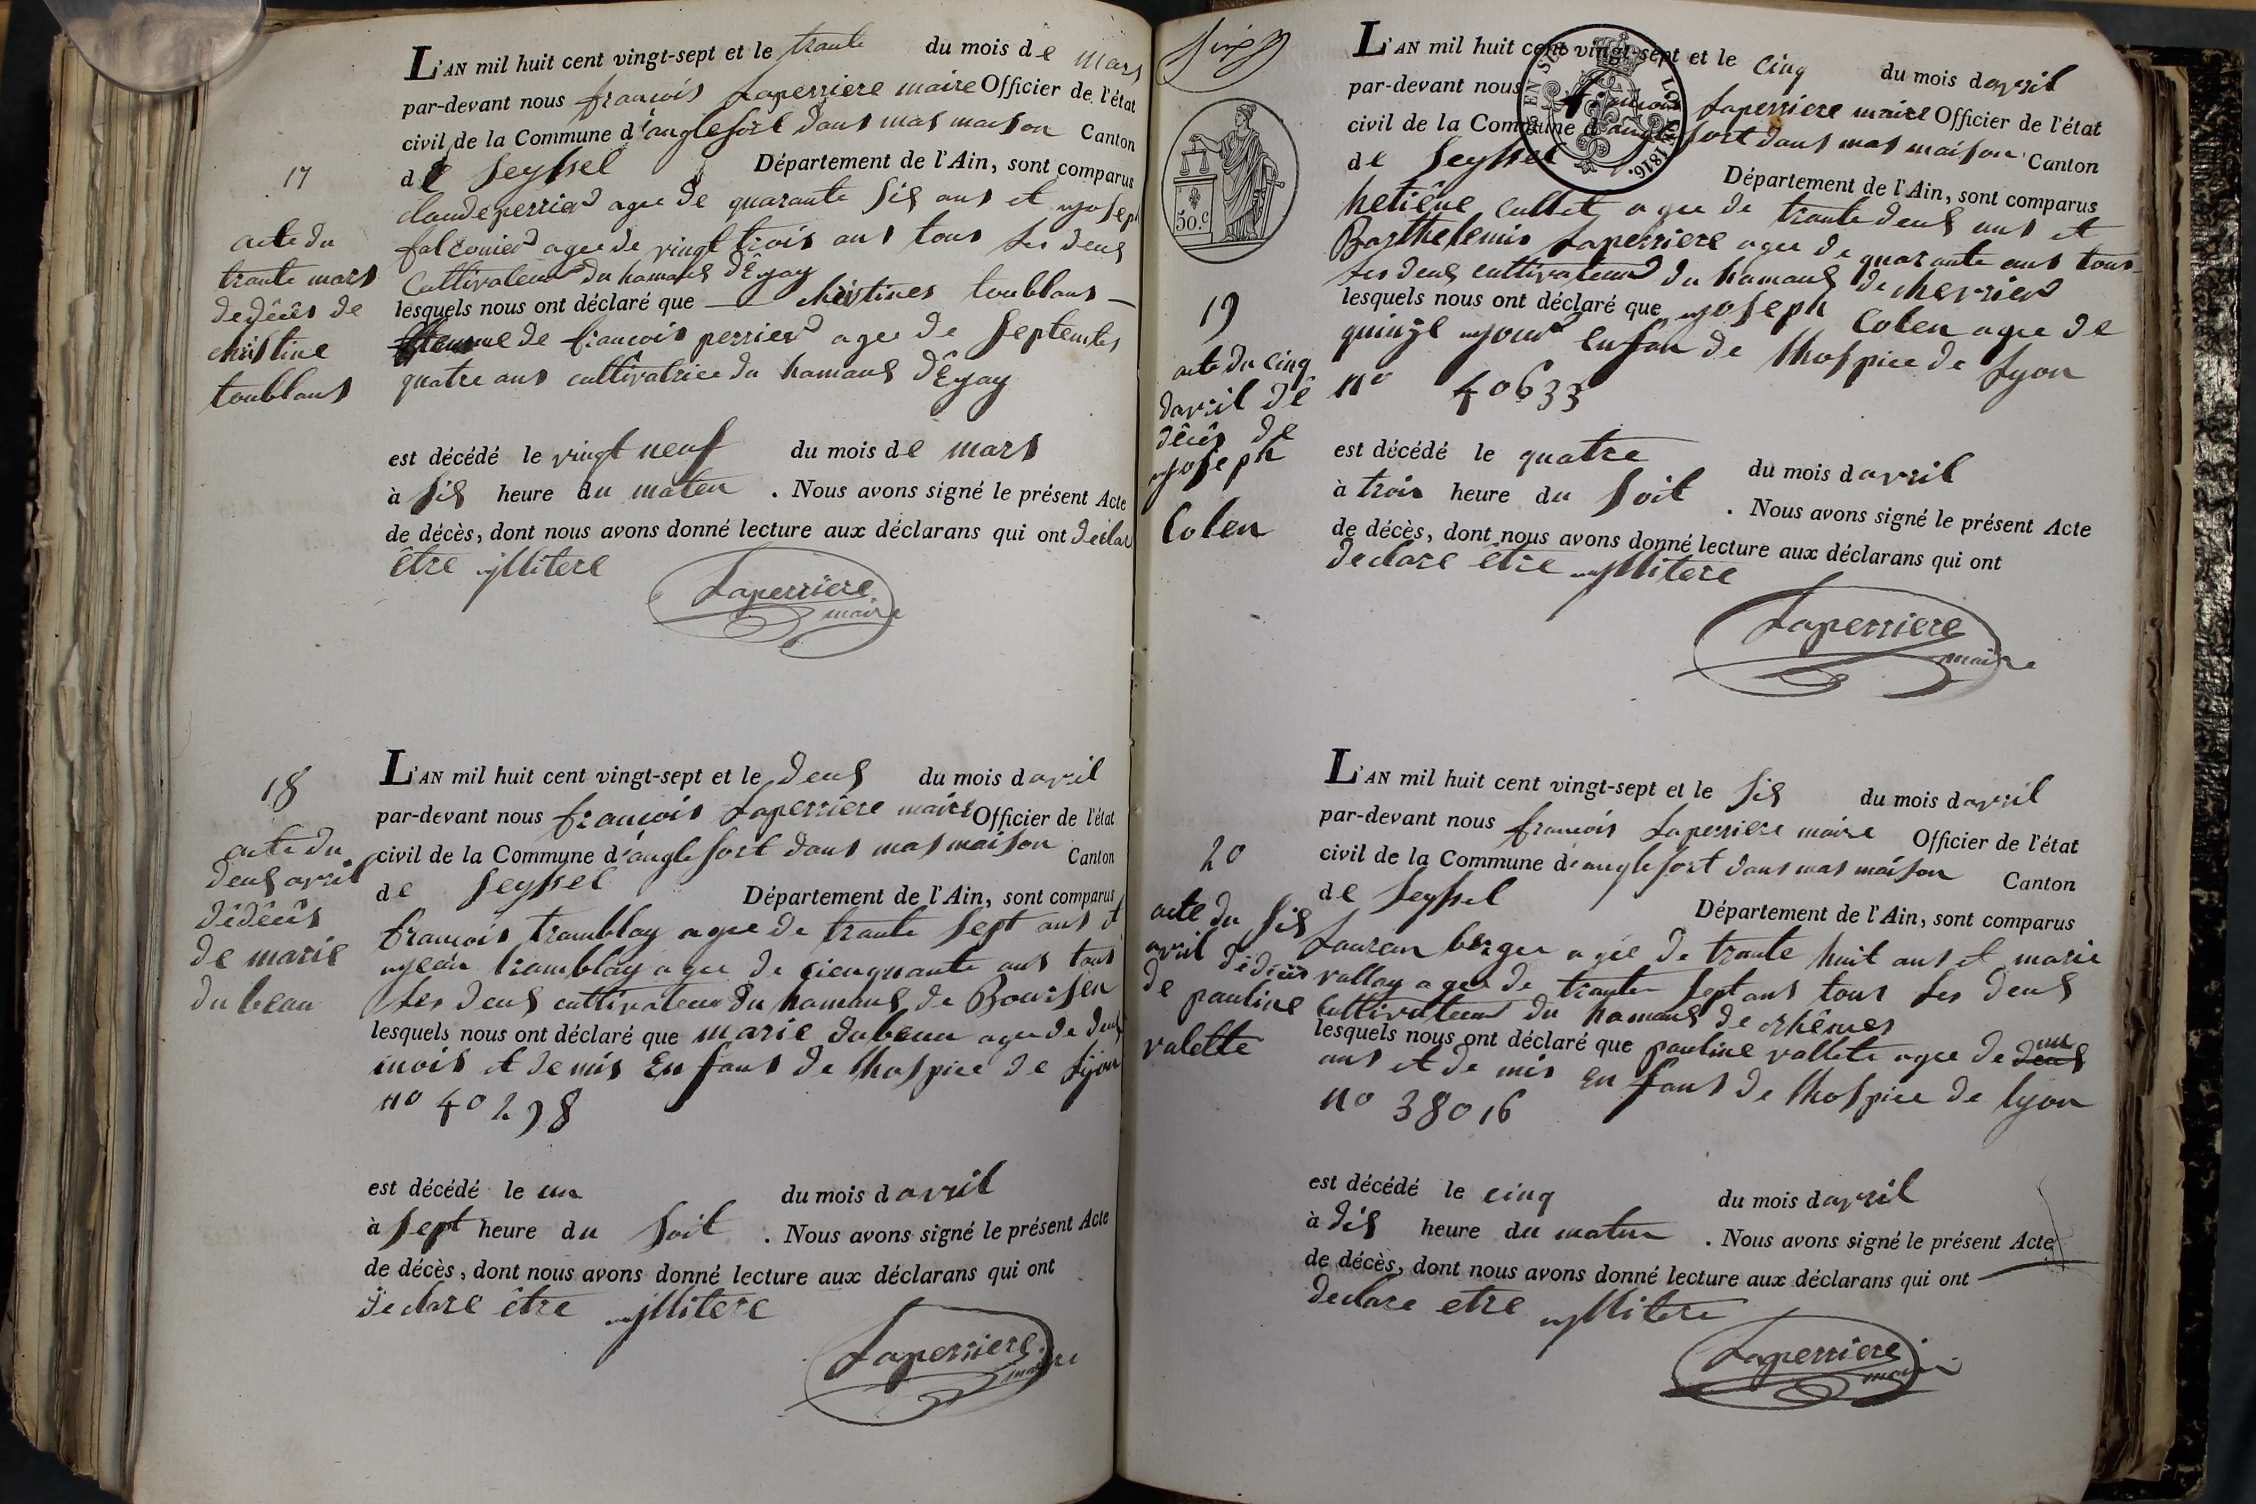 17
acte du
trante mars
de dêcês de
christine
toublans
L'AN mil huit cent vingt-sept et le trante du mois de mars
par-devant nous francois Laperriere maire Officier de l'état
civil de la Commune d'anglefort dans mas maison Canton
de Seyssel Département de l'Ain, sont comparus
claude perrier agee de quarante sis ans et
falconier agee de vingt trois ans tous les deus
Cultivateur du hamaus d'Eyay
lesquels nous ont déclaré que christines toublans
femme de francois perrier agee de septentes
quatre ans cultivatrice du hamaus d'Eyay
est décédé le vingt neuf du mois de mars
à sis heure du maten . Nous avons signé le présent Acte
de décès, dont nous avons donné lecture aux déclarans qui ont declare
être yllitere
Laperriere
maire
18
acte du
deus avril
dêdêcês
de marie
du beau
L'AN mil huit cent vingt-sept et le deus du mois d avril
par-devant nous francois Laperriere maire Officier de l'état
civil de la Commune d'anglefort dans mas maison Canton
de Seyssel Département de l'Ain, sont comparus
francois tramblay agee de trante sept ans et
yean tramblay agee de cienquante ans tous
les deus cultivateur du hamaus de Boursen
lesquels nous ont déclaré que marie dubeau agee de deus
mois et demis Enfans de lhospice de Lyon
no 40298
est décédé le un du mois d avril
à sept heure du soit . Nous avons signé le présent Acte
de décès, dont nous avons donné lecture aux déclarans qui ont
declare être yllitere
Laperriere
maire
50.c
19
acte du cinq
davril dê
dêcês de
yoseph
Colen
L'AN mil huit cent vingt-sept et le cinq du mois d avril
par-devant nous francois Laperriere maire Officier de l'état
civil de la Commune d'anglefort dans mas maison Canton
de Seyssel Département de l'Ain, sont comparus
hetiêne Cullet agee de trante deus ans et
Barthelemis Laperriere agee de quarante ans tous
les deus cultivateur du hamaus de cherrier
lesquels nous ont déclaré que yoseph Colen agee de
quinze your enfan de lhospice de Lyon
no 40633
est décédé le quatre du mois d avril
à trois heure du soit . Nous avons signé le présent Acte
de décès, dont nous avons donné lecture aux déclarans qui ont
declare être yllitere
Laperriere
maire
20
acte du sis
avril dêdêcês
de pauline
valette
L'AN mil huit cent vingt-sept et le sis du mois d avril
par-devant nous francois Laperriere maire Officier de l'état
civil de la Commune d'anglefort dans mas maison Canton
de Seyssel Département de l'Ain, sont comparus
Lauran berger agée de trante huit ans et marie
vallay agee de trante sept ans tous les deus
Cultivateur du hamaus de rhêmes
lesquels nous ont déclaré que pauline vallete agee de un
ans et de mis enfans de lhospice de lyon
no 38016
est décédé le cinq du mois d avril
à dis heure du maten . Nous avons signé le présent Acte
de décès, dont nous avons donné lecture aux déclarans qui ont
declare etre yllitere
Laperriere
maire